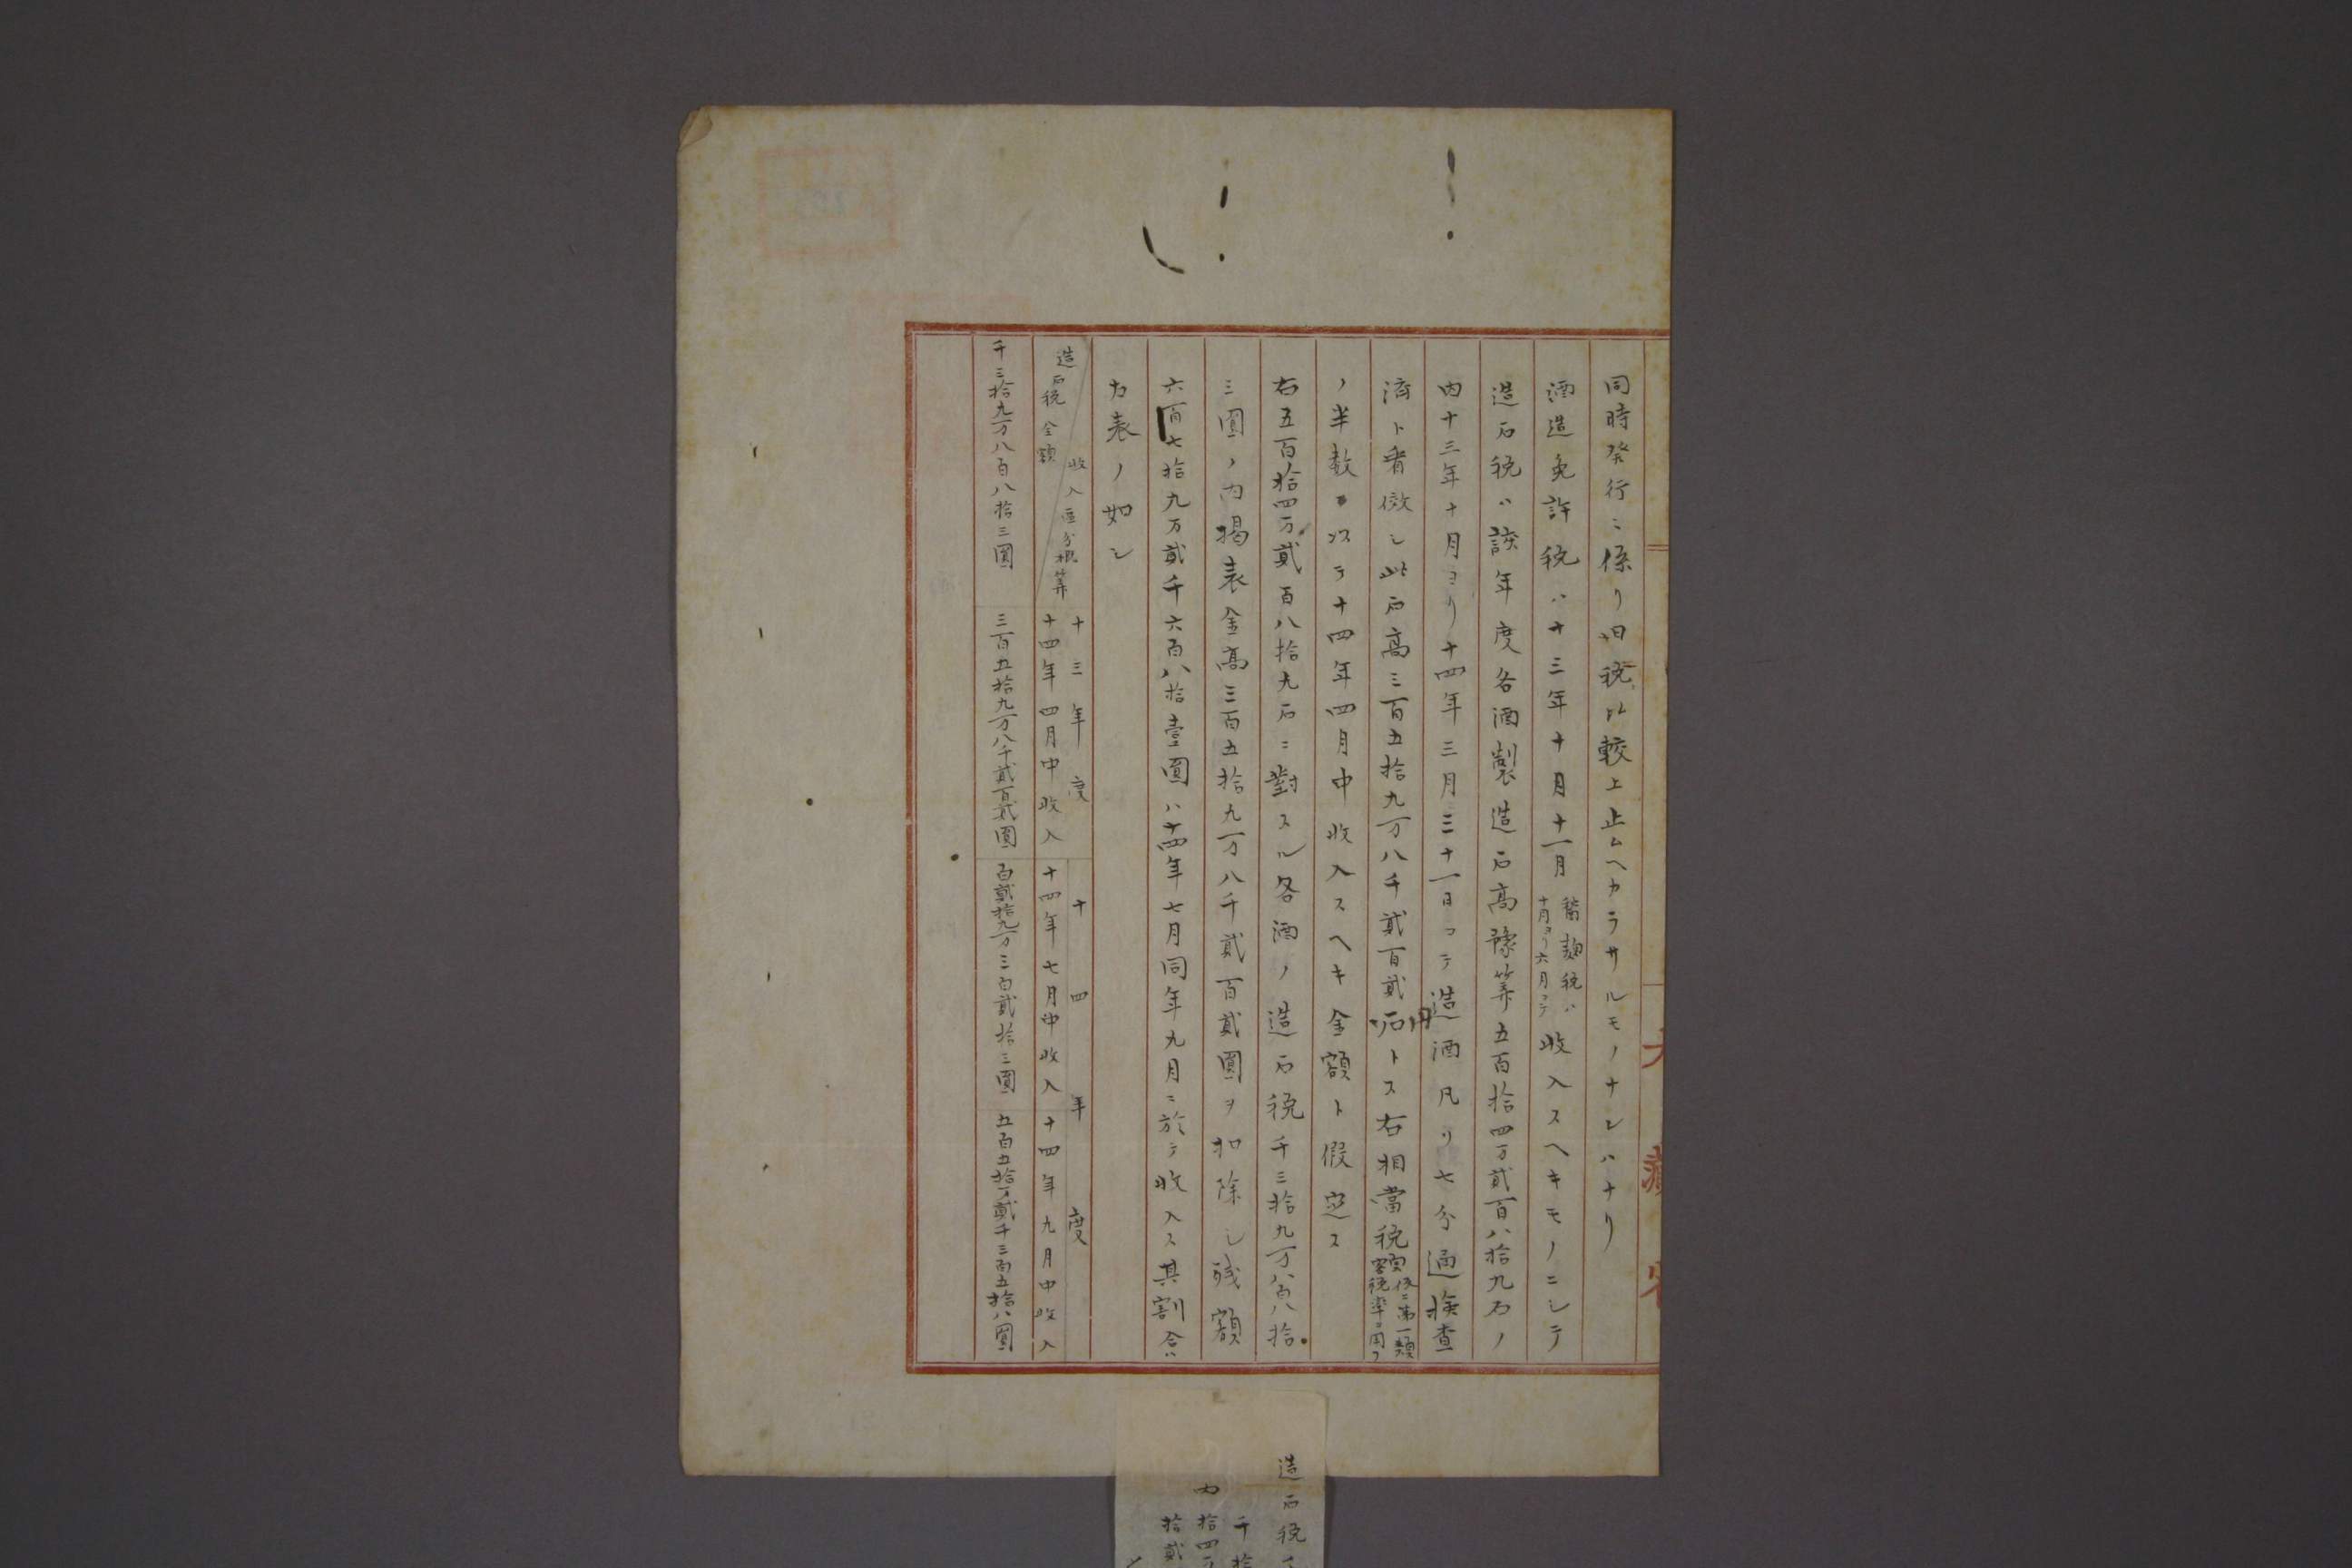 同時発行ニ係リ旧税比較上止ムヘカラサルモノナレハナリ
酒造免許税ハ十三年十月十一月
営麹税ハ
十月ヨリ六月マテ
収入スヘキモノニシテ
造石税ハ該年度各酒製造石高豫算五百拾四万貮百八拾九石ノ
内十三年十月ヨリ十四年三月三十一日マテ造酒凡ソ七分通検査
済ト看做シ此石高三百五拾九万八千貮百貮石トス右相當税
額仮ニ第一類
客税率ヲ用フ
円
ノ半数ヲ以テ十四年四月中収入スヘキ金額ト假定ス
右五百拾四万貮百八拾九石ニ對スル各酒ノ造石税千三拾九万八百八拾
三圓ノ内掲表金高三百五拾九万八千貮百貮圓ヲ扣除シ残額
六百七拾九万貮千六百八拾壹圓ハ十四年七月同年九月ニ於テ収入ス其割合ハ
左表ノ如シ
収入区分概算
造石税全額
十三年度
十四年四月中収入
十四年度
十四年七月中収入
十四年九月中収入
千三拾九万八百八拾三圓
三百五拾九万八千貮百貮圓
百貮拾九万三百貮拾三圓
五百五拾万貮千三百五拾八圓
大藏省
造石税千
千拾
内拾四万
拾貮